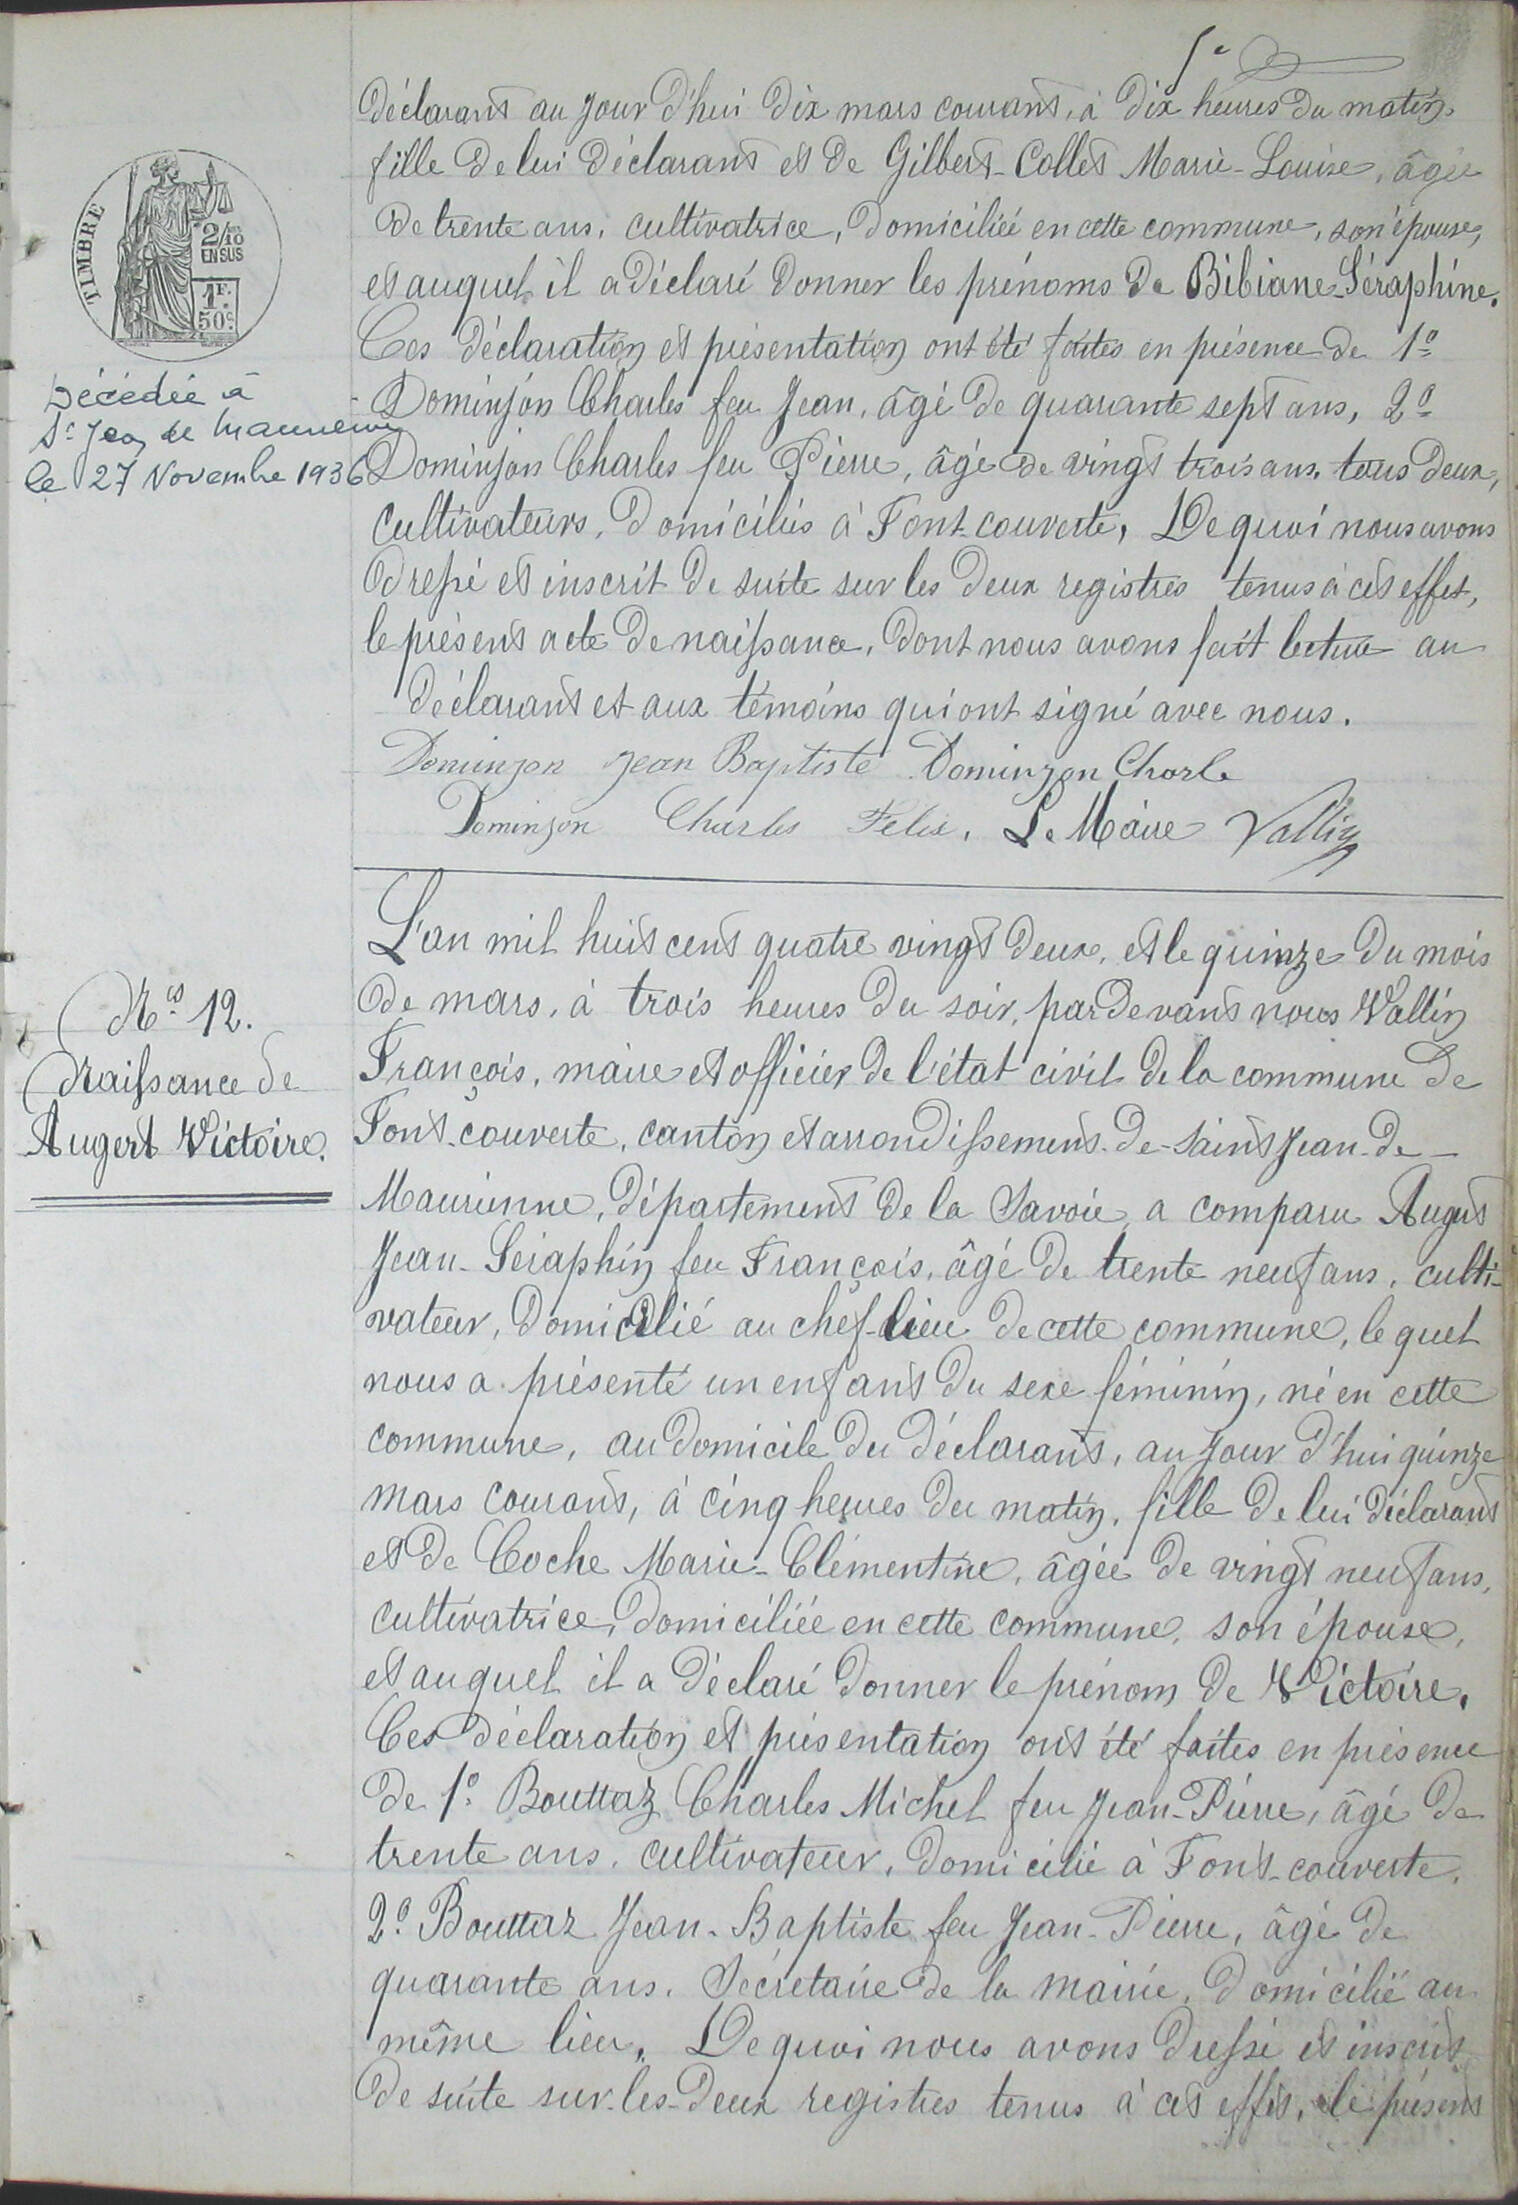 5e
TIMBRE
2/10 EN SUS
1F.50c.
Décédée à
St Jean de Maurienne
le 27 Novembre 1936
déclarant au jour d'hui dix mars courant, à dix heures du matin,
fille de lui déclarant et de Gilbert-Collet Marie-Louise, âgée
de trente ans, cultivatrice, domiciliée en cette commune, son épouse,
et auquel il a déclaré donner les prénoms de Bibiane-Séraphine.
Ces déclaration et présentation ont été faites en présence de 1º
Dominjon Charles feu Jean, âgé de quarante sept ans, 2º
Dominjon Charles feu Pierre, âgé de vingt trois ans, tous deux,
cultivateurs, domiciliés à Font-couverte, De quoi nous avons
dressé et inscrit de suite sur les deux registres tenus à cet effet,
le présent acte de naissance, dont nous avons fait lecture au
déclarant et aux témoins qui ont signé avec nous.
Dominjon Jean Baptiste Dominjon Charle
Dominjon Charles Felix. Le Maire Vallin
Nº 12.
Naissance de
Augert Victoire.
L'an mil huit cent quatre vingt deux, et le quinze du mois
de mars, à trois heures du soir, par devant nous Vallin
François, maire et officier de l'état civil de la commune de
Font-couverte, canton et arrondissement de Saint Jean-de-
Maurienne, département de la Savoie, a comparu Augert
Jean-Séraphin feu François, âgé de trente neuf ans, culti-
vateur, domicilié au chef-lieu de cette commune, le quel
nous a présenté un enfant du sexe féminin, né en cette
commune, au domicile du déclarant, au jour d'hui quinze
mars courant, à cinq heures du matin, fille de lui déclarant
et de Coche Marie-Clémentine, âgée de vingt neuf ans,
cultivatrice, domiciliée en cette commune, son épouse,
et auquel il a déclaré donner le prénom de Victoire.
Ces déclaration et présentation ont été faites en présence
de 1º Bouttaz Charles Michel feu Jean-Pierre, âgé de
trente ans, cultivateur, domicilié à Font-couverte.
2º Bouttaz Jean-Baptiste feu Jean-Pierre, âgé de
quarante ans, Secrétaire de la mairie, domicilié au
même lieu. De quoi nous avons dressé et inscrit
de suite sur les deux registres tenus à cet effet, le présent